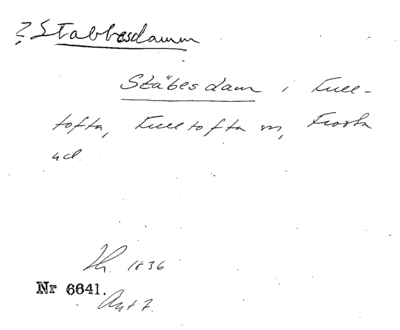 ? Stabbesdamm
Stäbesdam i Full-
tofta, Fulltofta sn, Frosta
hd.
1836
Nr 6641.
Akt 7.